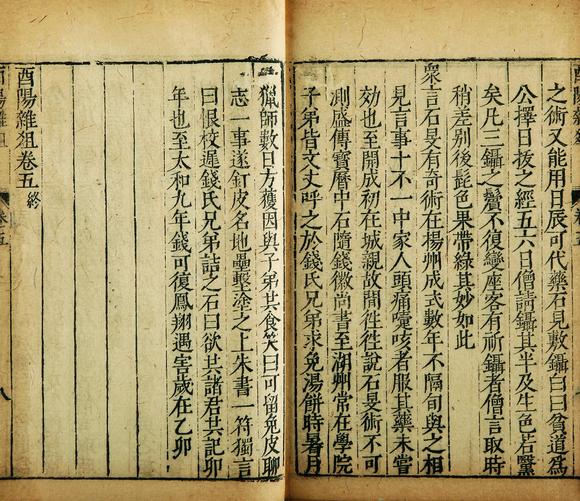 之術又能用日辰可代藥石見敷鑷白曰貧道為
公擇日拔之經五六日僧請鑷其半及生色若黳
矣凡三鑷之鬢不復變座客有祈鑷者僧言取時
稍差別後髭色果帶綠其妙如此
衆言石旻有奇術在揚州成式數年不隔旬與之相
見言事十不一中家人頭痛嚏咳者服其藥未嘗
効也至開成初在城親故間徃徃說石旻術不可
測盛傳寶曆中石隨錢徽尚書至湖州常在學院
子弟皆文丈呼之於錢氏兄弟求兔湯餅時暑月
獵師數日方獲因與子弟共食笑曰可留兔皮聊
志一事遂釘皮名地壘墼塗之上朱書一符獨言
曰恨校遲錢氏兄弟詰之石曰欲共諸君共記卯
年也至太和九年錢可復鳳翔遇害歲在乙卯
酉陽雜俎卷五終
八